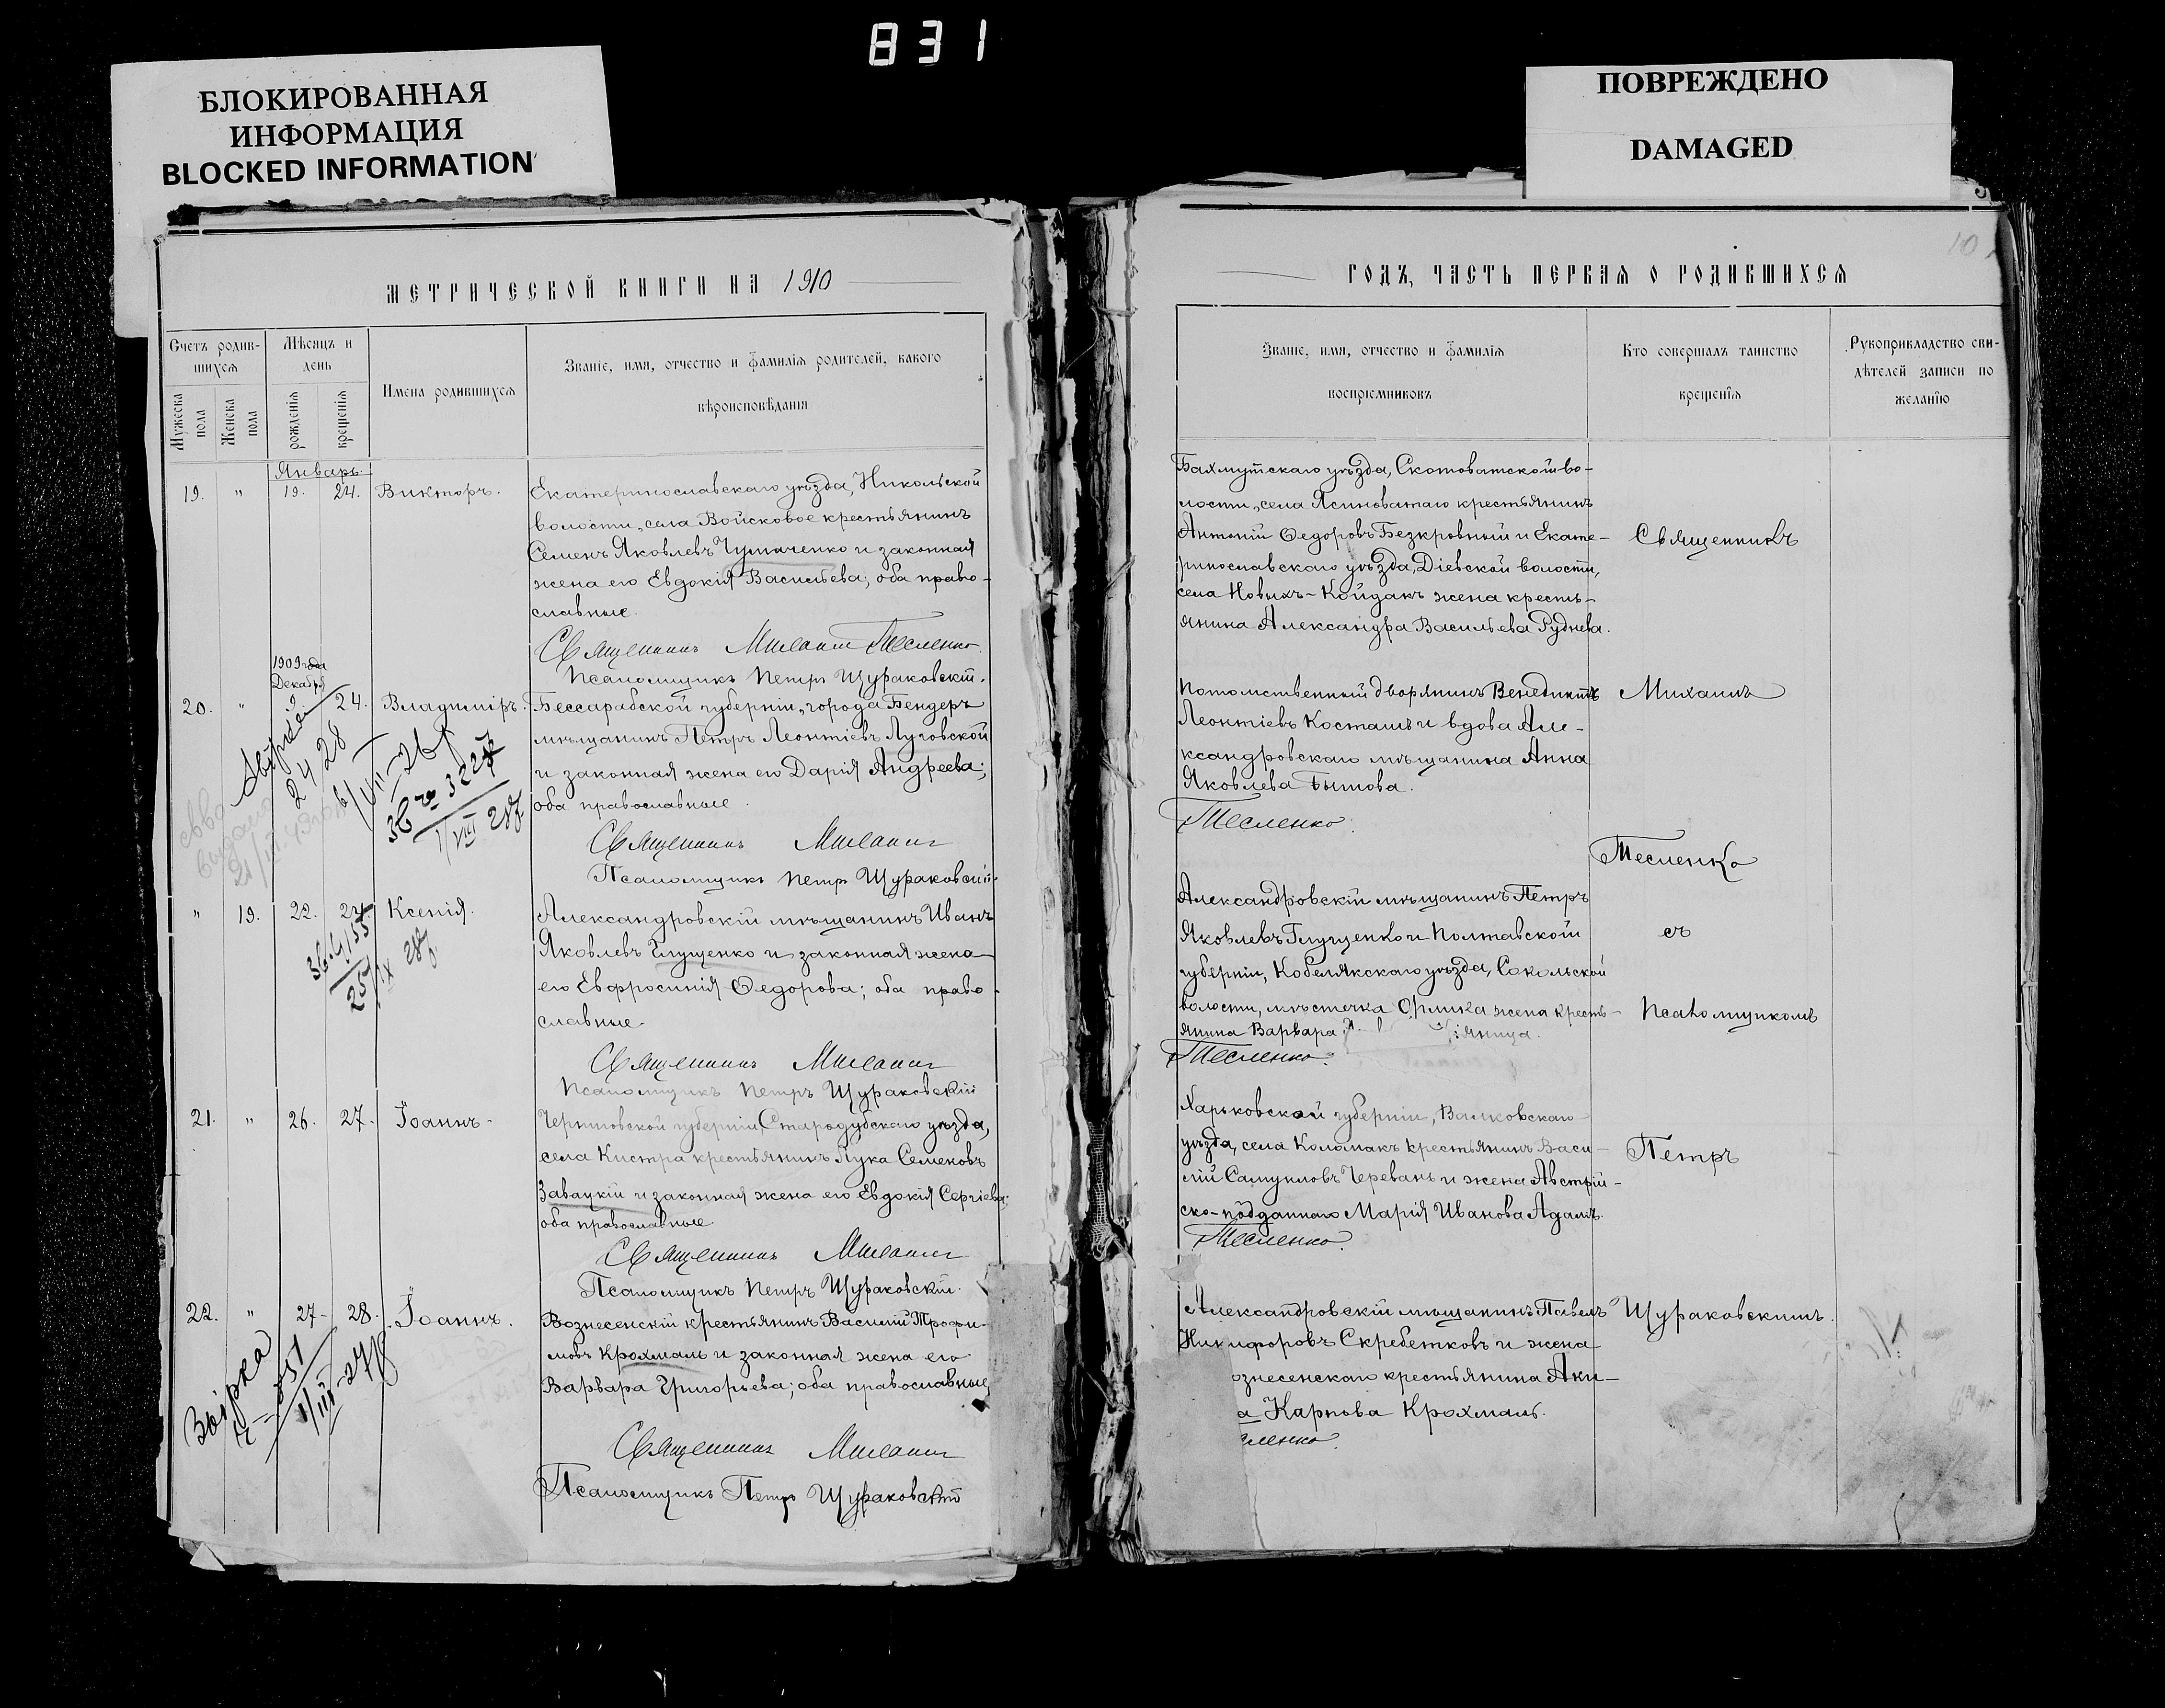 831
БЛОКИРОВАННАЯ
ИНФОРМАЦИЯ
BLOCKED INFORMATION
ПОВРЕЖДЕНО
DAMAGED
МЕТРИЧЕСКОЙ КНИГИ НА 1910
Счетъ родив-
шихся
Мужеска пола
Женска пола
Мѣсяцъ и
день
рожденія
крещенія
Имена родившихся
Званіе, имя, отчество и фамилія родителей, какого
вѣроисповѣданія
Январь
19. " 19. 24. Викторъ.
Екатеринославскаго уѣзда, Никольской
волости, села Войсковое крестьянинъ
Семенъ Яковлевъ Чумаченко и законная
жена его Евдокія Васильева; оба право-
славные.
Священникъ Михаилъ Тесленко.
Псаломщикъ Петръ Щураковскій.
1909 года
Декабря
20. " 9. 24. Владиміръ.
Бессарабской губерніи, города Бендеръ
мѣщанинъ Петръ Леонтіевъ Луговской
и законная жена его Дарія Андреева;
оба православные.
Священникъ Михаилъ
Псаломщикъ Петръ Щураковскій.
" 19. 22. 24. Ксенія.
Александровскій мѣщанинъ Иванъ
Яковлевъ Глущенко и законная жена
его Евфросинія Федорова; оба право-
славные.
Священникъ Михаилъ
Псаломщикъ Петръ Щураковскій
21. " 26. 27. Іоаннъ.
Черниговской губерніи, Стародубскаго уѣзда,
села Кистра крестьянинъ Лука Семеновъ
Завацкій и законная жена его Евдокія Сергіева;
оба православные
Священникъ Михаилъ
Псаломщикъ Петръ Щураковскій.
22. " 27. 28. Іоаннъ.
Вознесенскій крестьянинъ Василій Трофи-
мовъ Крохмаль и законная жена его
Варвара Григорьева; оба православные
Священникъ Михаилъ
Псаломщикъ Петръ Щураковскій
10
ГОДЪ, ЧАСТЬ ПЕРВАЯ О РОДИВШИХСЯ
Званіе, имя, отчество и фамилія
воспріемниковъ
Кто совершалъ таинство
крещенія
Рукоприкладство сви-
дѣтелей записи по
желанію
Бахмутскаго уѣзда, Скотоватской во-
лости, села Ясиноватаго крестьянинъ
Антоній Федоровъ Безкровный и Екате-
ринославскаго уѣзда, Діевской волости,
села Новыхъ-Койдакъ жена кресть-
янина Александра Васильева Руднева.
Потомственный дворянинъ Венедиктъ
Леонтіевъ Косташъ и вдова Але-
ксандровскаго мѣщанина Анна
Яковлева Бытова.
Тесленко.
Александровскій мѣщанинъ Петръ
Яковлевъ Глущенко и Полтавской
губерніи, Кобелякскаго уѣзда, Сокольской
волости, мѣстечка Орлика жена кресть-
янина Варвара
Тесленко.
Харьковской губерніи, Валковскаго
уѣзда, села Коломакъ крестьянинъ Васи-
лій Самуиловъ Черевань и жена Австрій-
ско-подданнаго Марія Иванова Адамъ.
Тесленко.
Александровскій мѣщанинъ Павелъ
Никифоровъ Скребетковъ и жена
ознесенскаго крестьянина Аки-
а Карпова Крохмаль.
сленко.
Священникъ
Михаилъ
Тесленко
съ
Псаломщикомъ
Петръ
Щураковскимъ.